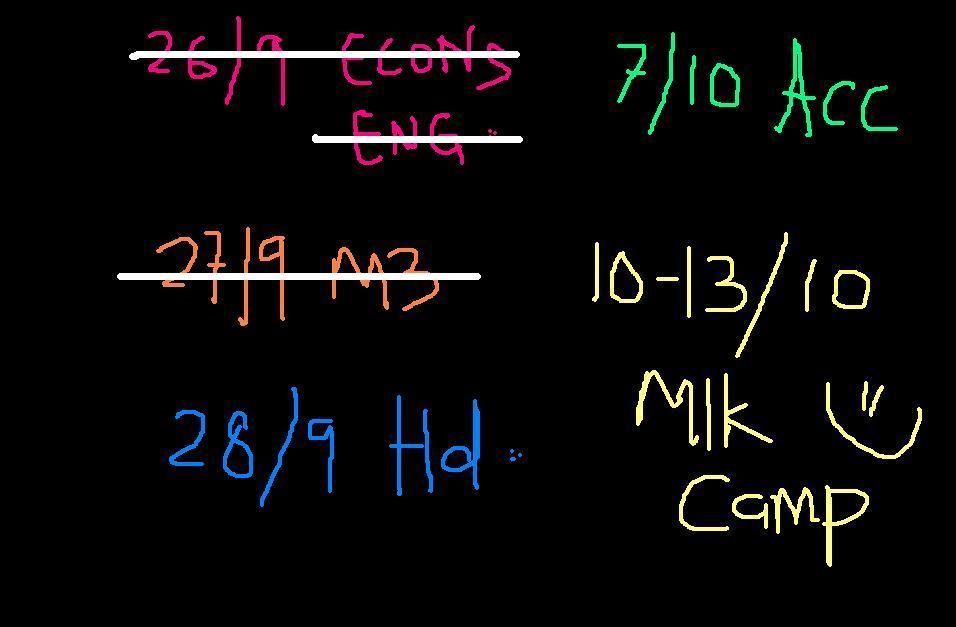 26/9 ECONS
ENG
27/9 M3
28/9 Hd
7/10 ACC
10-13/10
Mlk
Camp